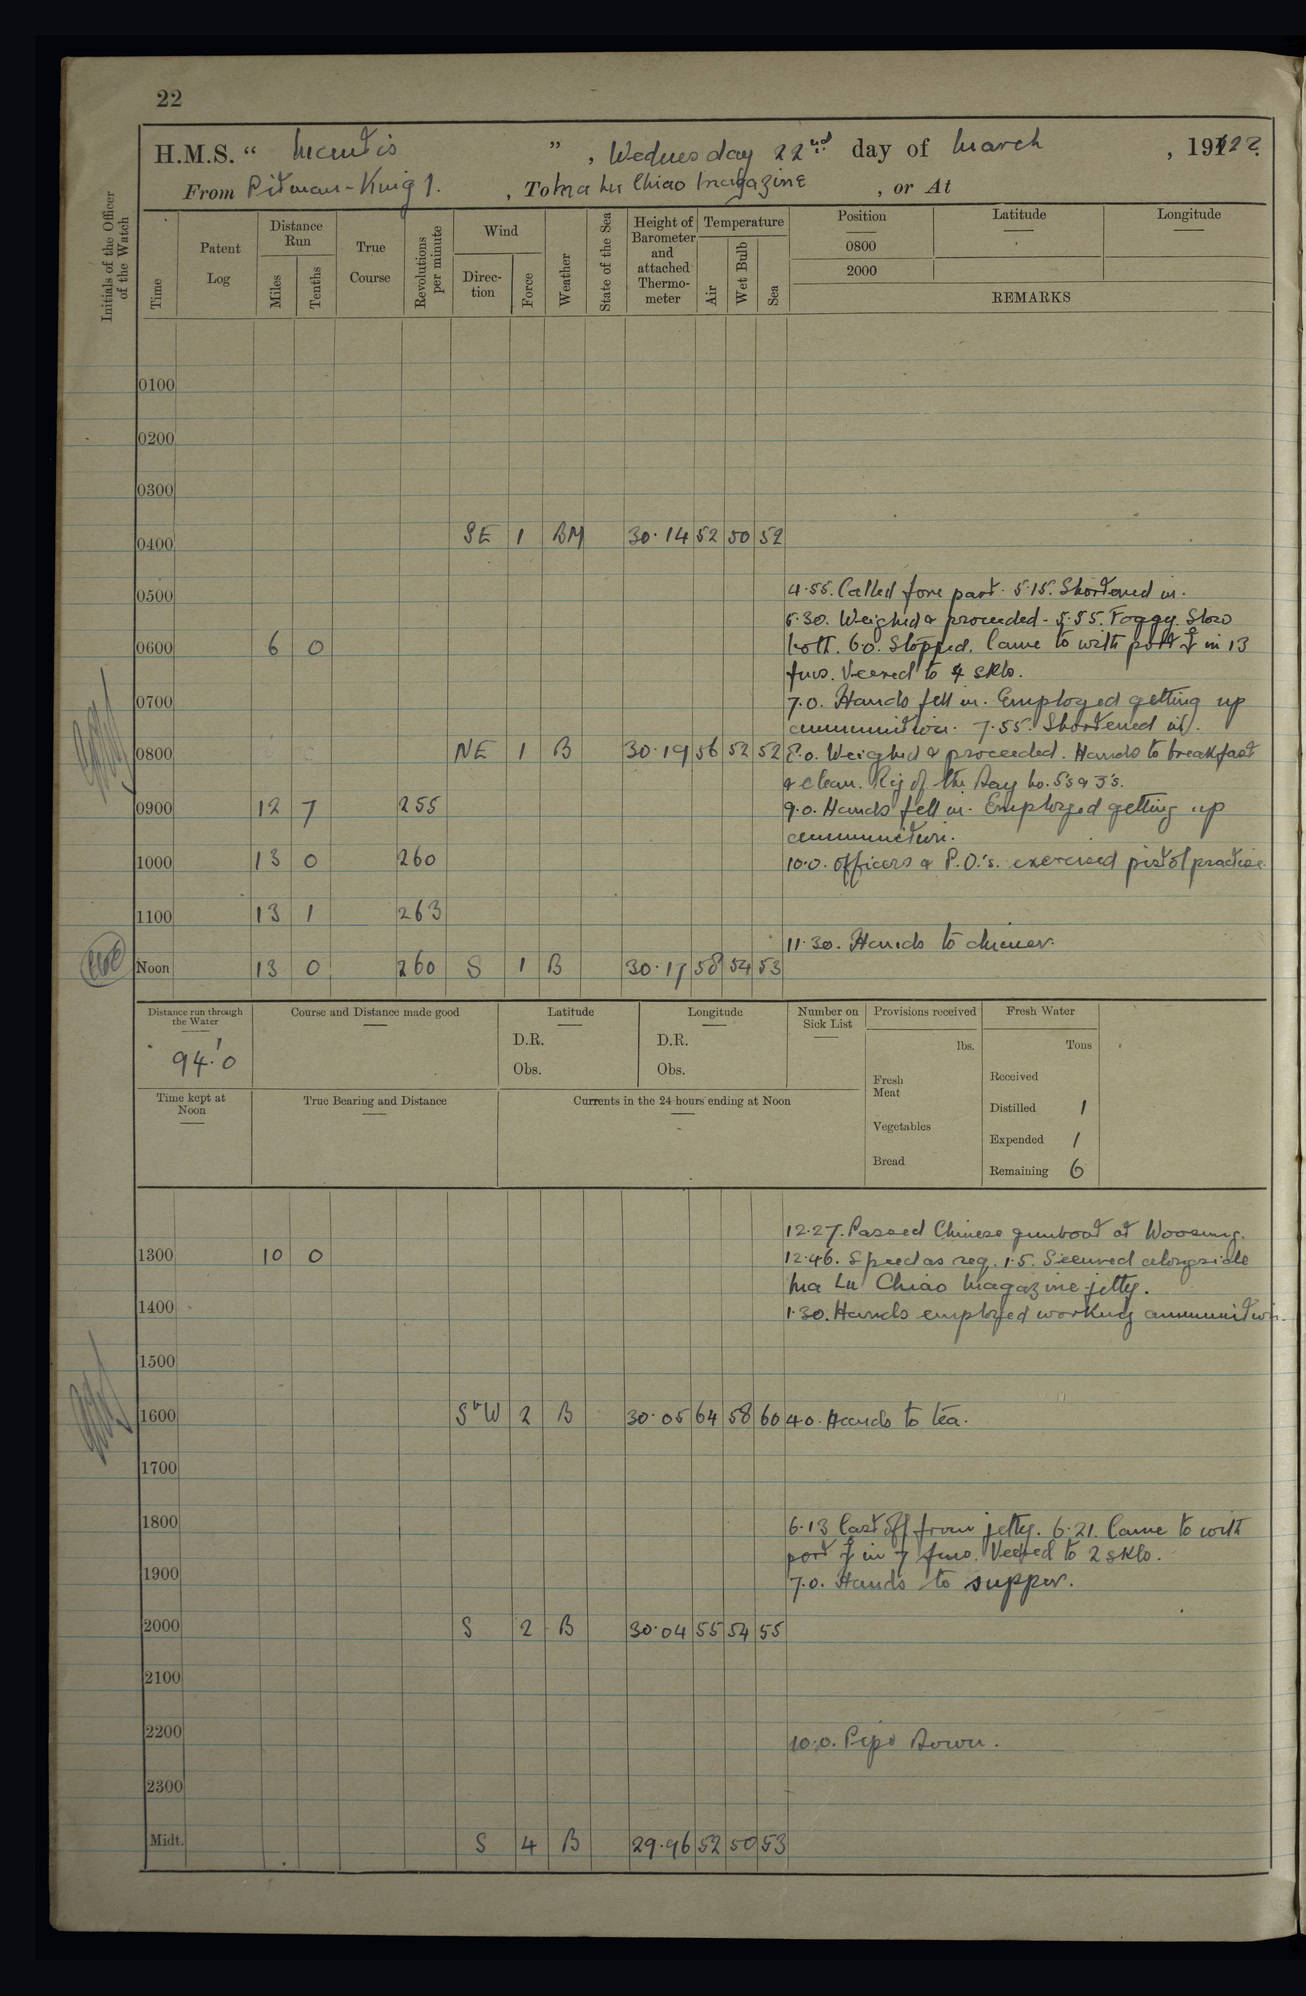 22
H.M.S. “ Mantis ” , Wednesday 22nd day of March , 191922.
From Pitman-King I. , To Ma Lu Chiao Magazine , or At
Initials of the Officer of the Watch
Time
Patent Log
Distance Run
Miles
Tenths
True Course
Revolutions per minute
Wind
Direction
Force
Weather
State of the Sea
Height of Barometer and attached Thermometer
Temperature
Air
Wet Bulb
Sea
Position
Latitude
Longitude
0800
2000
REMARKS
0100
0200
0300
0400 SE 1 BM 30·14 52 50 52
0500 4·55. Called fore part. 5·15. Shortened in.
5·30. Weighed & proceeded. 5·55. Foggy. Slow
0600 6 0 both. 6·0. Stopped. Came to with port ⚓ in 13
fms. Veered to 4 skls.
0700 7·0. Hands fell in. Employed getting up
ammunition. 7·55. Shortened in.
0800 NE 1 B 30·19 56 52 52 8·0. Weighed & proceeded. Hands to breakfast
& clean. Rig of the Day No. 5's & 3's.
0900 12 7 255 9·0. Hands fell in. Employed getting up
ammunition.
1000 13 0 260 10·0. Officers & P.O.'s. exercised pistol practice.
1100 13 1 263
11·30. Hands to dinner.
Noon 13 0 260 S 1 B 30·17 58 54 53
Distance run through the Water
94·'0
Course and Distance made good
Latitude
D.R.
Obs.
Longitude
D.R.
Obs.
Number on Sick List
Provisions received
lbs.
Fresh Meat
Vegetables
Bread
Fresh Water
Tons
Received
Distilled 1
Expended 1
Remaining 6
Time kept at Noon
True Bearing and Distance
Currents in the 24 hours ending at Noon
12·27. Passed Chinese gunboat at Woosung.
1300 10 0 12·46. Speed as req. 1·5. Secured alongside
Ma Lu Chiao Magazine jetty.
1400 1·30. Hands employed working ammunition.
1500
1600 SbW 2 B 30·05 64 58 60 4·0. Hands to tea.
1700
1800 6·13 Cast off from jetty. 6·21. Came to with
port ⚓ in 7 fms. Veered to 2 skls.
1900 7·0. Hands to supper.
2000 S 2 B 30·04 55 54 55
2100
2200 10·0. Pipe Down.
2300
Midt. S 4 B 29·96 52 50 53